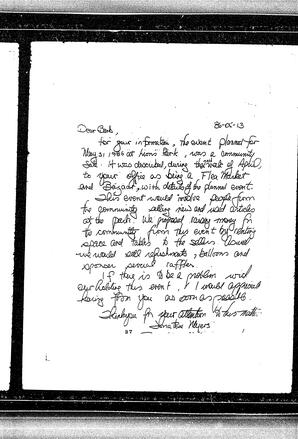 86-05-13
Dear Barb,
For your information, the event planned for
May 31, 1986 at Lion's Park, was a community
Sale. It was described, during the week of April,
to your office as being a Flea Market
and Bazaar, with details of the planned event.
This event would involve people from
the community selling new and used articles
at the park. We proposed raising money for
the community from this event by renting
space and tables to the sellers
we would sell refreshments, balloons and
sponsor several raffles.
If there is to be a problem with
our holding this event, I would appreciate
hearing from you as soon as possible.
Thankyou for your attention to this matter.